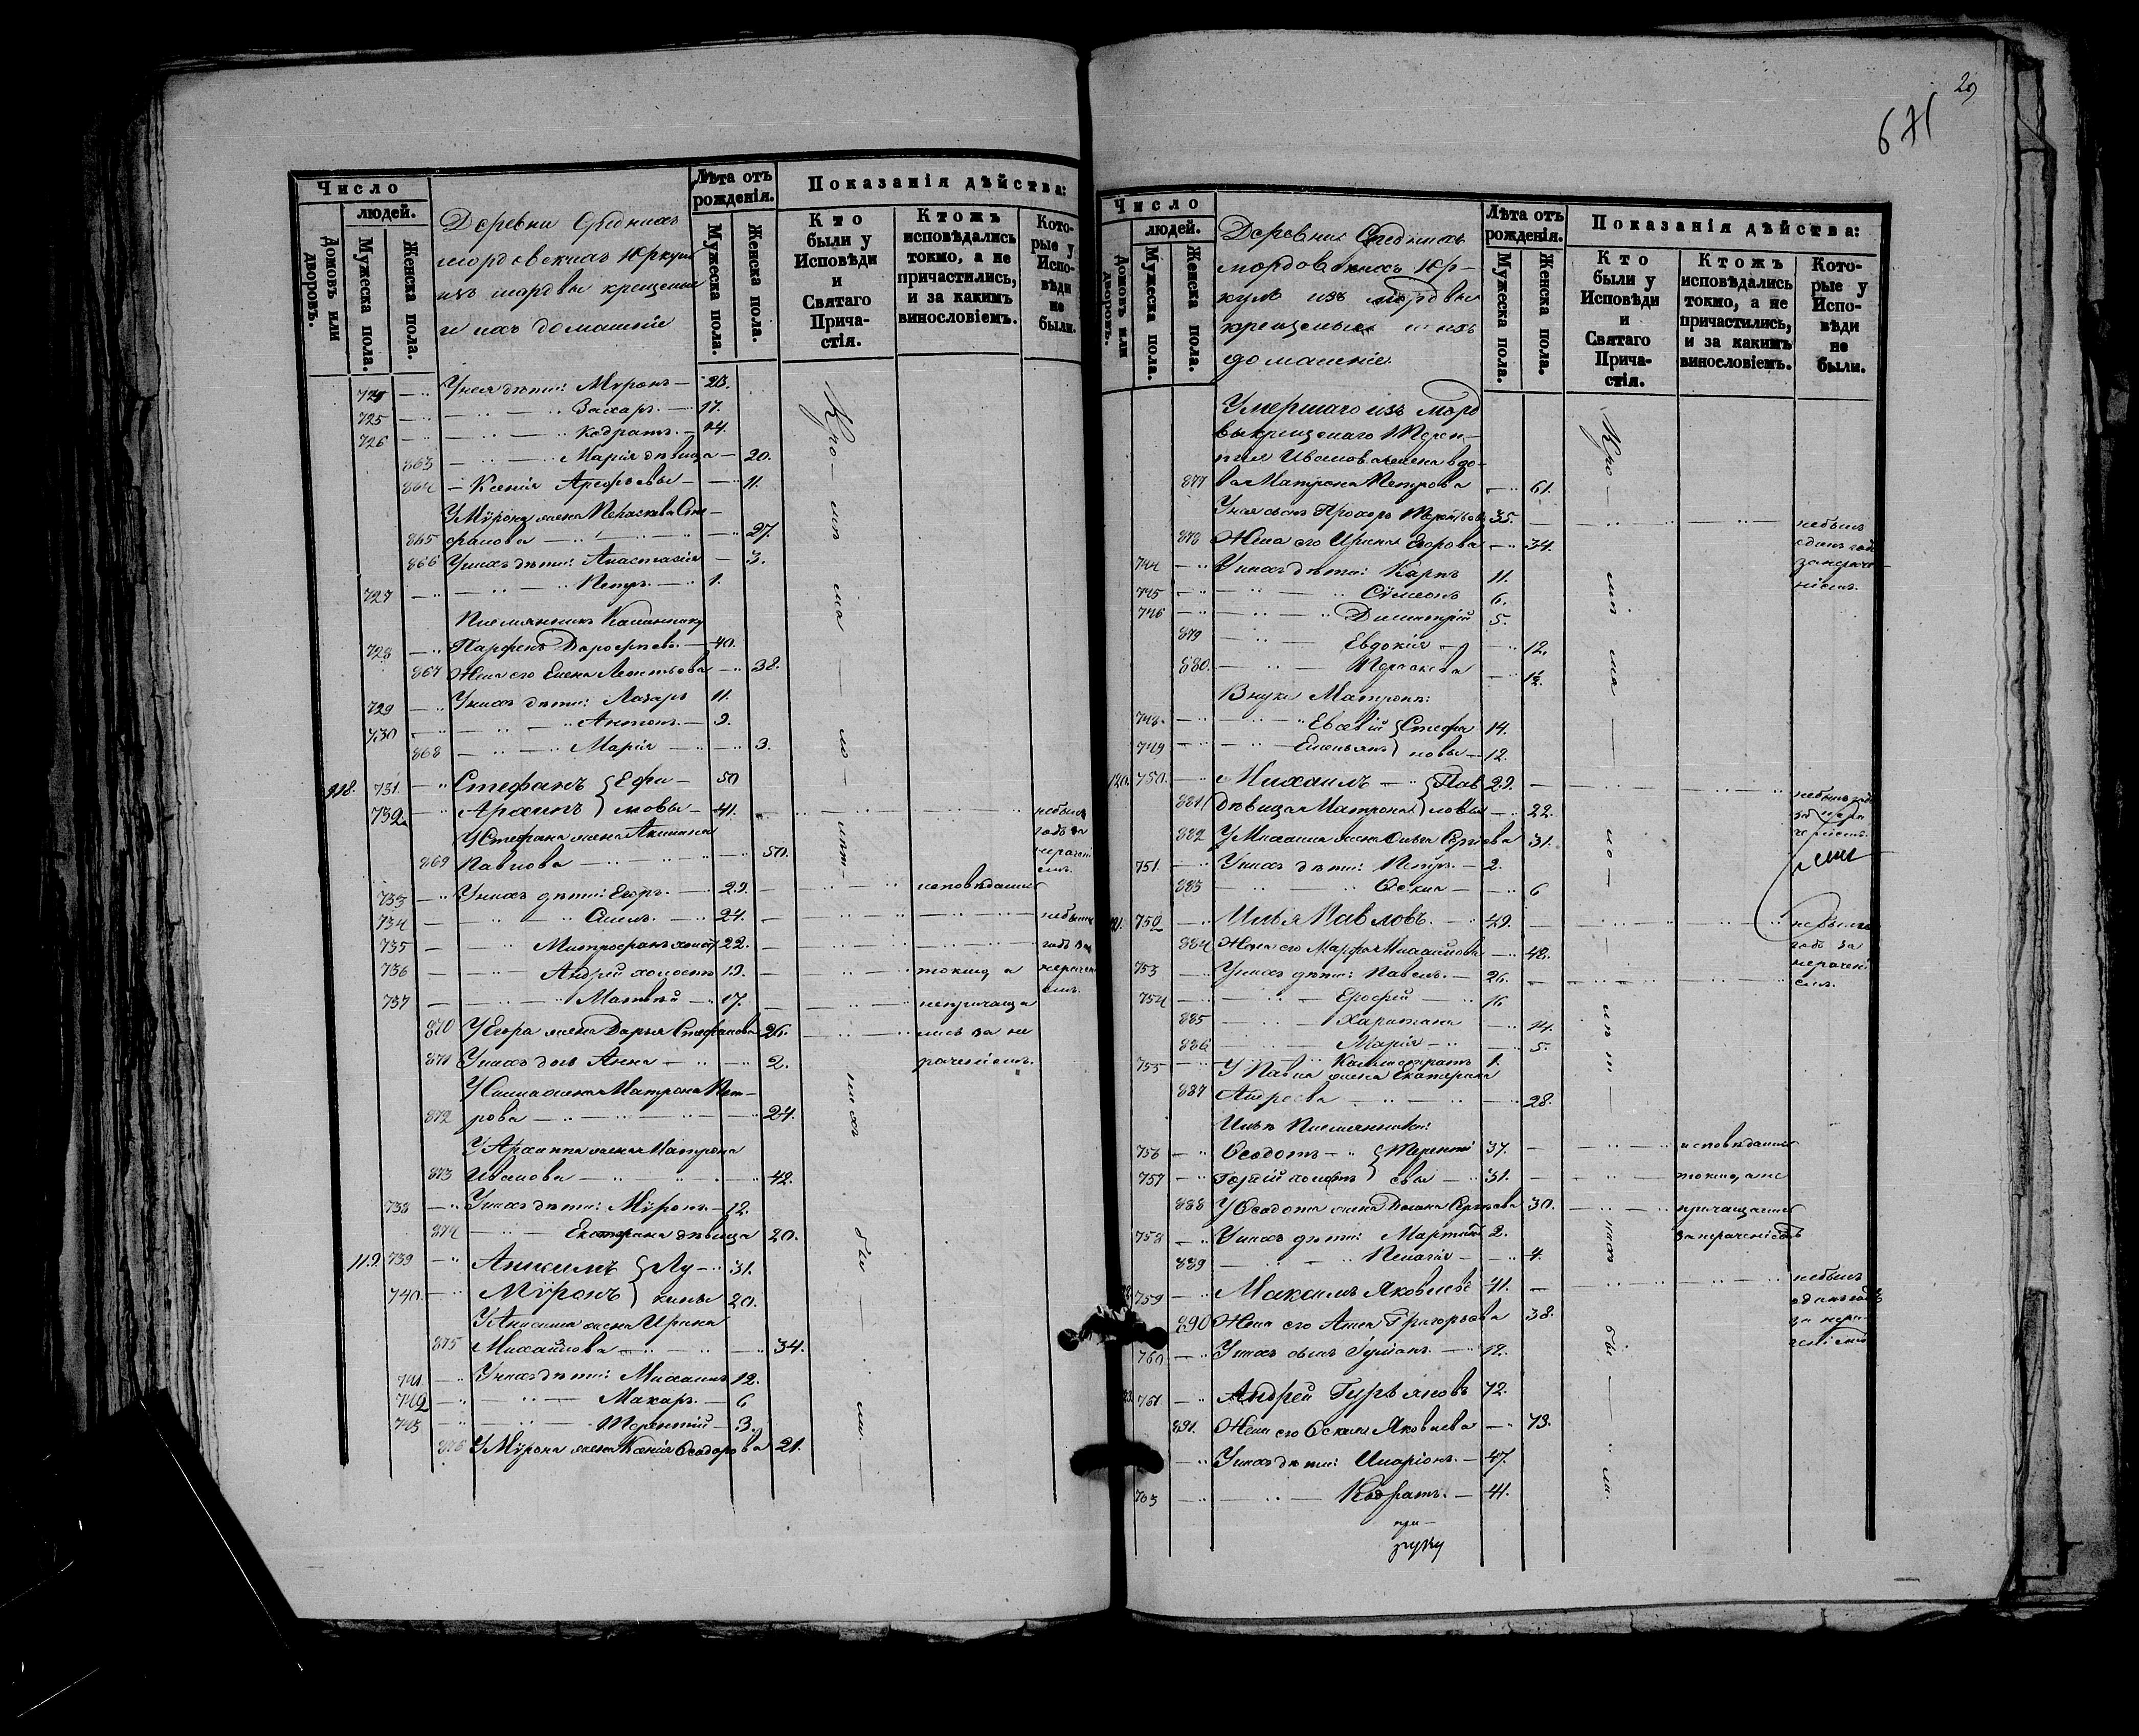 Число
людей.
Домовъ или дворовъ.
Мужеска пола.
Женска пола.
Деревни Среднихъ
мордовскихъ Юркуль
изъ мордвы крещеныя
и ихъ домашніе
Лѣта отъ рожденія.
Мужеска пола.
Женска пола.
Показанія дѣйства:
Кто были у Исповѣди и Святаго Причастія.
Ктожъ исповѣдались токмо, а не причастились, и за какимъ винословіемъ.
Которые у Исповѣди не были.
724 У нея дѣти: Миронъ — 23.
725 Захаръ — 17.
726 Кодратъ — 14.
863 Марія дѣвица — 20.
864 Ксенія Арефьева — 11.
У Мирона жена Параскева Сте-
865 фанова — 27.
866 У нихъ дѣти: Анастасія — 3.
727 Петръ — 1.
Племянникъ
728 Парфенъ Дорофеевъ — 40.
867 Жена его Елена Леонтьева — 38.
729 У нихъ дѣти: Лазарь 11.
730 Антонъ — 9.
868 Марія — 3.
118. 731 Стефанъ } Ефи- 50
732 Архипъ } мовы — 41. небылъ
У Стефана жена Акилина годъ за
869 Павлова — 50. нерачені
емъ.
733 У нихъ дѣти: Егоръ — 29. исповѣдались
734 Силъ — 24. небылъ
735 Митрофанъ холост 22. годъ за
736 Андрей холостъ 19. токмо, а нерачені
емъ.
737 Матвѣй — 17. непричаща
870 У Егора жена Дарья Стефанова 26. лись за не
871 У нихъ дочь Анна — 2. раченіемъ.
У Сила жена Матрона Пет-
872 рова — 24.
У Архипа жена Матрона
873 Иванова — 42.
738 У нихъ дѣти: Миронъ — 12.
874 Екатерина дѣвица 20.
119. 739 Анисимъ } Лу- 31.
740. Миронъ } кины 20.
У Анисима жена Ирина
875 Михайлова — 34.
741. У нихъ дѣти: Михаилъ 12.
742 Макаръ — 6
743 Терентій — 3.
876 У Мирона жена Ксенія Ѳеодорова 21.
29
671
Число
людей.
Домовъ или дворовъ.
Мужеска пола.
Женска пола.
Деревни Среднихъ
мордовскихъ Юр-
куль изъ мордвы
крещеныя и ихъ
домашніе.
Лѣта отъ рожденія.
Мужеска пола.
Женска пола.
Показанія дѣйства:
Кто были у Исповѣди и Святаго Причастія.
Ктожъ исповѣдались токмо, а не причастились, и за какимъ винословіемъ.
Которые у Исповѣди не были.
Умершаго изъ морд
вы крещенаго Терен-
тія Иванова жена вдо-
877 ва Матрона Петрова 61.
У нея сынъ Прохоръ Терентьевъ 35. небылъ
878 Жена его Ирина Егорова 34. одинъ годъ
744 У нихъ дѣти: Карпъ 11. занераче-
745 Сумеонъ 6. ніемъ.
746 Димитрій 5.
879 Евдокія 12.
880. Параскева
Внуки Матроны:
748 Евсѣвій } Стефа 14.
749 Емельянъ } новы — 12.
120. 750. Михаилъ } Пав 29.
881 дѣвица Матрона } ловы 22.
882 У Михаила жена Ольга Сергѣева 31.
751. У нихъ дѣти: Петръ — 2.
883 6
121. 752 Илья Павловъ. 49. небылъ
884 Жена его Марфа Михайлова 48. годъ за
753 У нихъ дѣти: Павелъ — 26. нерачені
754 Ерофей 16 емъ.
885 Харитина 14.
886 Марія 5.
755 Каллистратъ 1.
У Павла жена Екатерина
887 Андреева 28.
Ильи племянники:
756 Ѳеодотъ } Теренті 37. исповѣдались
757 холостъ } евы 31. токмо, а не
888 У Ѳеодота жена Сергѣева 30. причащались
758 У нихъ дѣти: Мартинъ 2. занераченіемъ
889 Пелагія — 4.
759 Максимъ Яковлевъ 41. небылъ
890 Жена его Анна Григорьева 38. одинъ годъ
760 У нихъ сынъ 12. за нера-
ченіемъ
761 Андрей Гурьяновъ 72.
891. Жена его Яковлева 73.
У нихъ дѣти: Иларіонъ. — 47.
763 Кодратъ. — 41.